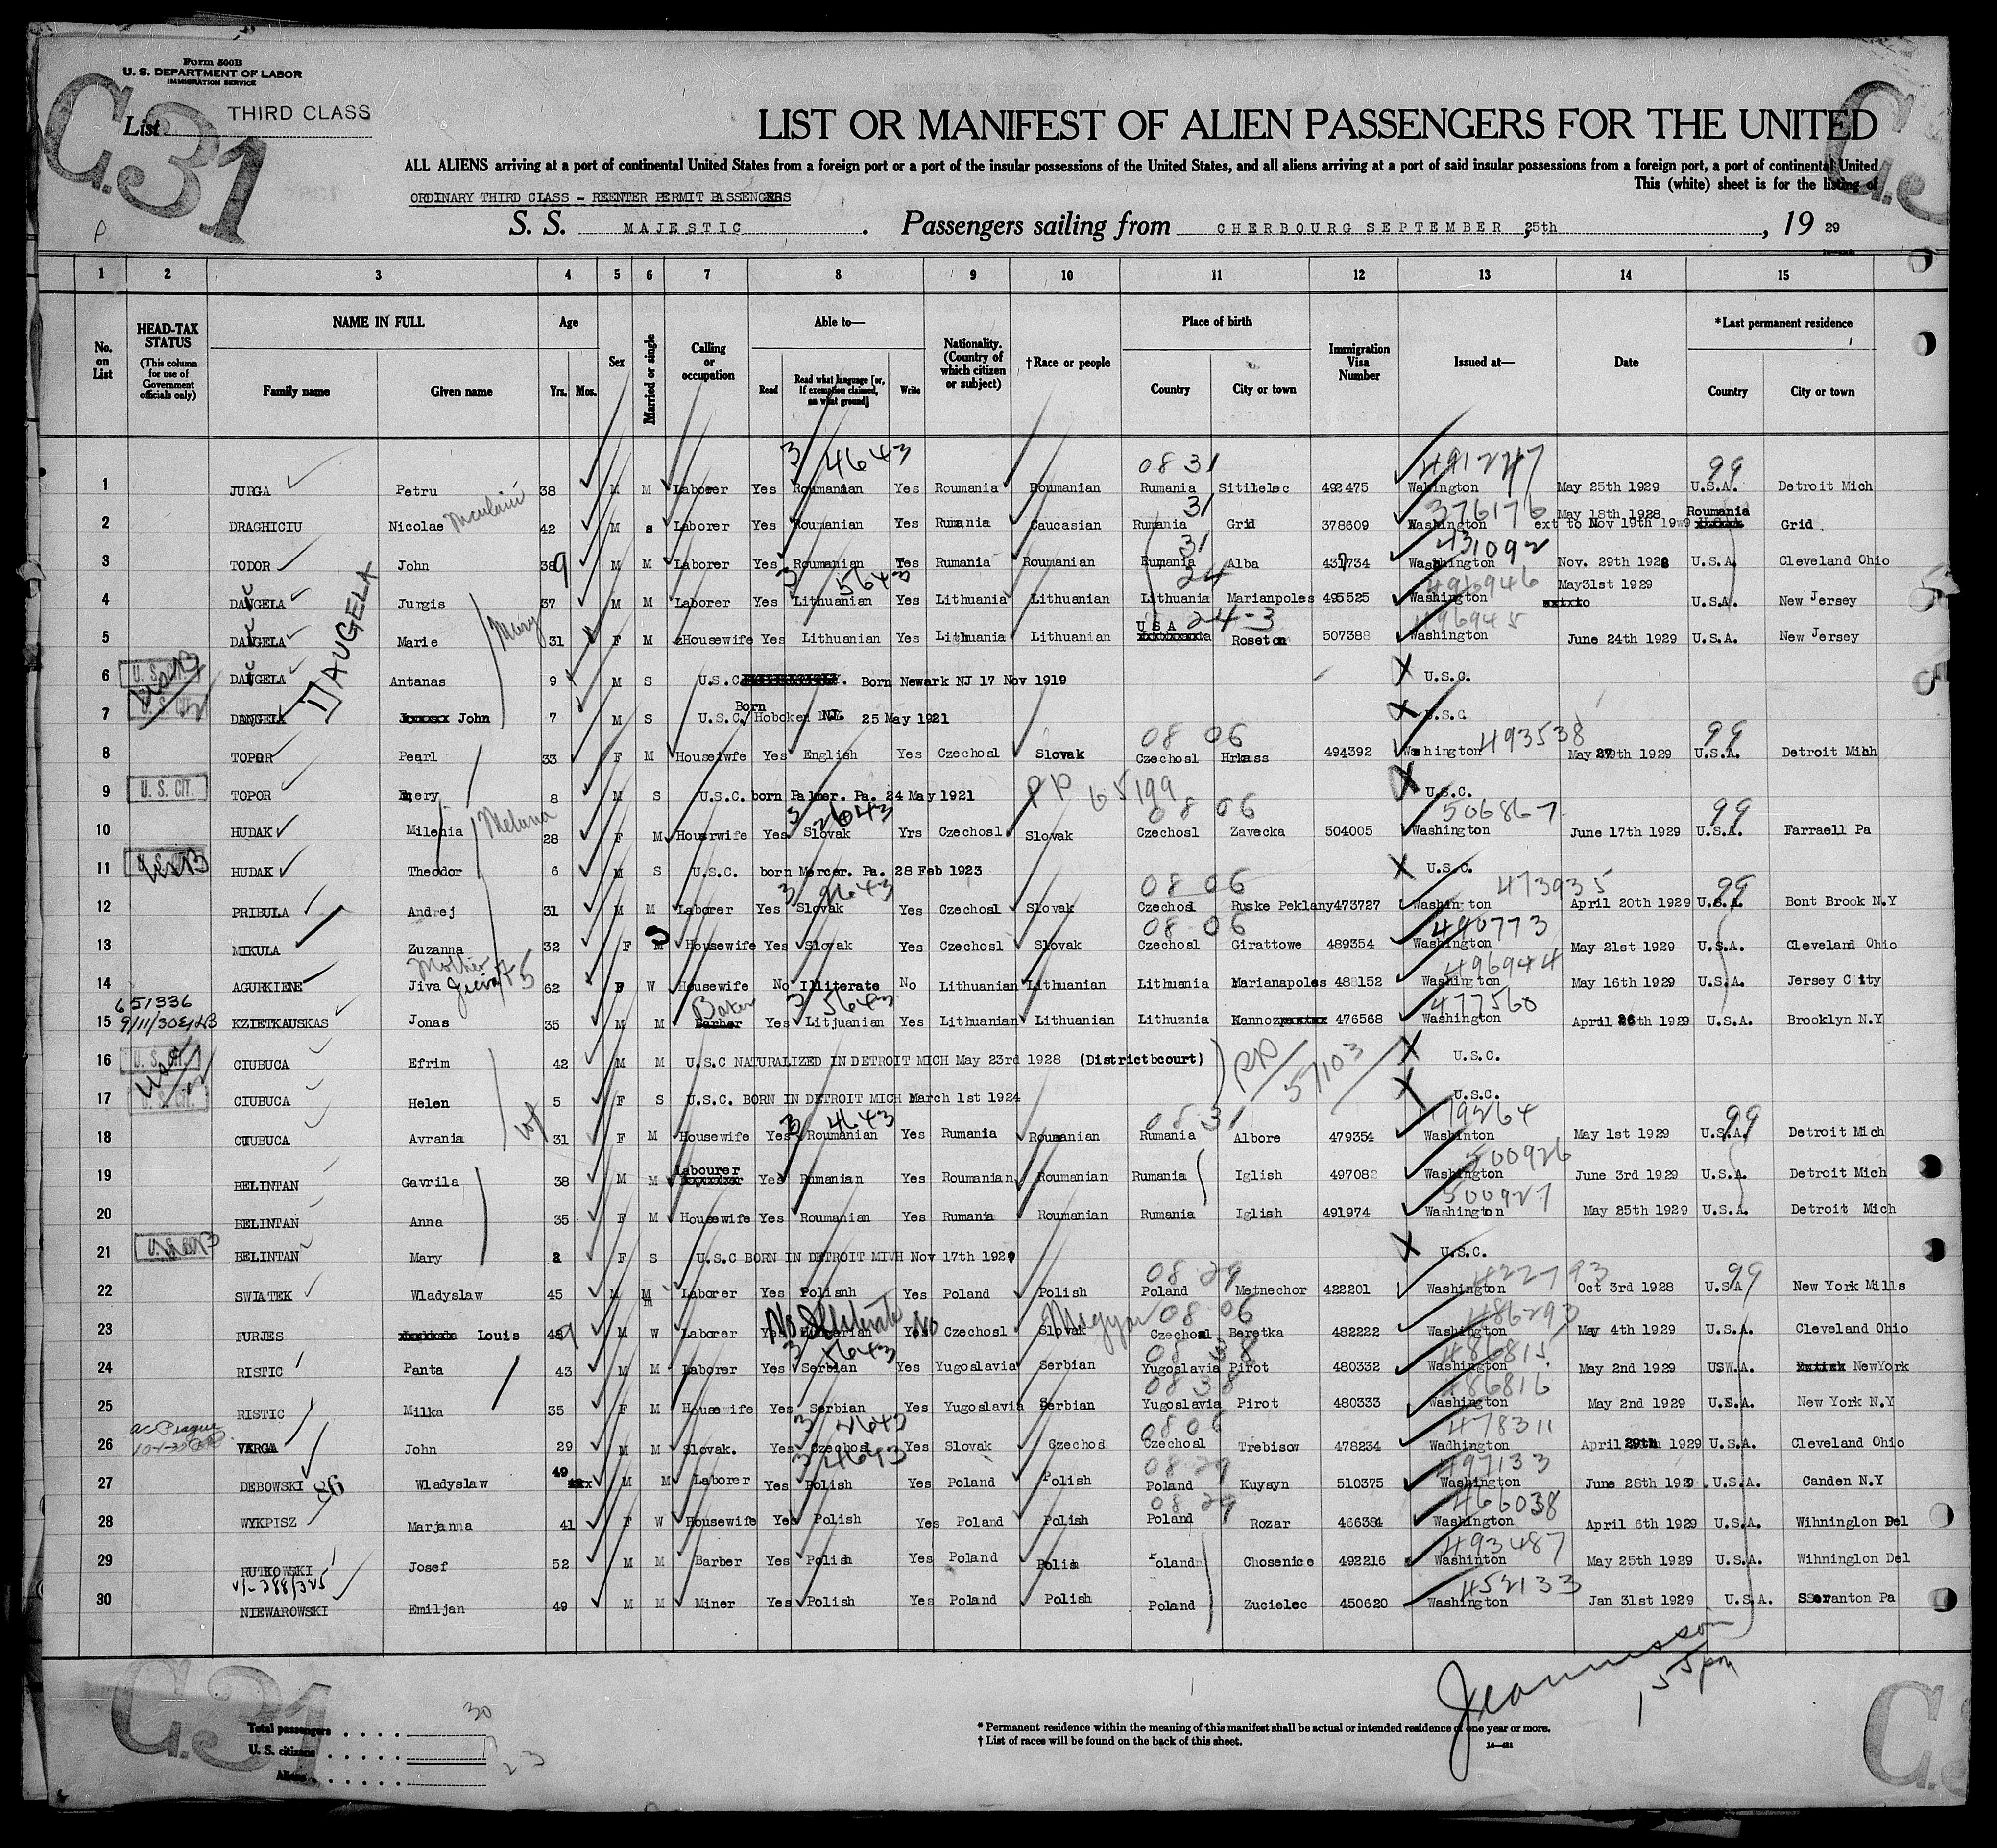 Form 500B
U. S. DEPARTMENT OF LABOR
IMMIGRATION SERVICE
C.31
List THIRD CLASS
LIST OR MANIFEST OF ALIEN PASSENGERS FOR THE UNITED
ALL ALIENS arriving at a port of continental United States from a foreign port or a port of the insular possessions of the United States, and all aliens arriving at a port of said insular possessions from a foreign port, a port of continental United
This (white) sheet is for the listing of
ORDINARY THIRD CLASS - REENTER PERMIT PASSENGERS
S. S. MAJESTIC. Passengers sailing from CHERBOURG SEPTEMBER 25th, 1929
1 2 3 4 5 6 7 8 9 10 11 12 13 14 15
No. on List
HEAD-TAX STATUS (This column for use of Government officials only)
NAME IN FULL Family name Given name
Age Yrs. Mos.
Sex
Married or single
Calling or occupation
Able to— Read Read what language [or, if exemption claimed, on what ground] Write
Nationality. (Country of which citizen or subject)
†Race or people
Place of birth Country City or town
Immigration Visa Number
Issued at—
Date
*Last permanent residence Country City or town
3 4643 0831 491247 99
1 JURGA Petru 38 M M Laborer Yes Roumanian Yes Roumania Roumanian Rumania Sititelec 492475 Wahington May 25th 1929 U.S.A. Detroit Mich
31 376176 May 18th 1928 Roumania
2 DRAGHICIU Nicolae 42 M s Laborer Yes Roumanian Yes Rumania Caucasian Rumania Grid 378609 Washington ext to Nov 19th Grid
31 431092
3 TODOR John 39 M M Laborer Yes Roumanian Yes Rumania Roumanian Rumania Alba Washington Nov. 29th 1928 U.S.A. Cleveland Ohio
DAUGELA
3 5643 24 496946 May31st 1929
4 DAUGELA Jurgis 37 M M Laborer Yes Lithuanian Yes Lithuania Lithuanian Lithuania Marianpoles 495525 Washington U.S.A. New Jersey
Mary USA 24-3 496945
5 DAUGELA Marie 31 F M Housewife Yes Lithuanian Yes Lithuania Lithuanian Roseton 507388 Washington June 24th 1929 U.S.A. New Jersey
6 U. S. CIT. DAUGELA Antanas 9 M S U.S.C. Born Newark NJ 17 Nov 1919 U.S.C.
7 U. S. CIT. DAUGELA John 7 M S U.S.C. Born Hoboken N.J. 25 May 1921 U.S.C
08 06 493538 99
8 TOPOR Pearl 33 F M Houseiwfe Yes English Yes Czechosl Slovak Czechosl Hrkass 494392 Washington May 29th 1929 U.S.A. Detroit Mihh
9 U. S. CIT. TOPOR Emery 8 M S U.S.C. born Palmer. Pa. 24 May 1921 PP 65199 U.S.C.
Melana 3 2643 08 06 506867 99
10 HUDAK Milenia 28 F M Houserwife Yes Slovak Yrs Czechosl Slovak Czechosl Zavecka 504005 Washington June 17th 1929 U.S.A. Farraell Pa
11 HUDAK Theodor 6 M S U.S.C. born Mercer. Pa. 28 Feb 1923 U.S.C.
08 06 473935 99
12 PRIBULA Andrej 31 M M Laborer Yes Slovak Yes Czechosl Slovak Czechosl Ruske Peklany 473727 Washington April 20th 1929 U.S.A. Bont Brook N.Y
08 06 490773
13 MIKULA Zuzanna 32 F M Housewife Yes Slovak Yes Czechosl Slovak Czechosl Girattowe 489354 Washington May 21st 1929 U.S.A. Cleveland Ohio
Mother 496944
14 AGURKIENE Jiva 62 F W Housewife No Illiterate No Lithuanian Lithuanian Lithuania Marianpoles 488152 Washington May 16th 1929 U.S.A. Jersey City
651336 Baker 3 5643 477560
15 9/11/30 KZIETKAUSKAS Jonas 35 M M Barber Yes Litjuanian Yes Lithuanian Lithuanian Lithuznia Kanno 476568 Washington April 26th 1929 U.S.A. Brooklyn N.Y
16 U. S. CIT. CIUBUCA Efrim 42 M M U.S.C NATURALIZED IN DETROIT MICH May 23rd 1928 (District court) PP 57103 U.S.C.
17 U. S. CIT. CIUBUCA Helen 5 F S U.S.C. BORN IN DETROIT MICH March 1st 1924 U.S.C.
wf 3 4643 08 31 99
18 CIUBUCA Avrania 31 F M Housewife Yes Roumanian Yes Rumania Roumanian Rumania Albore 479354 Washinton May 1st 1929 U.S.A. Detroit Mich
Labourer 500926
19 BELINTAN Gavrila 38 M M Yes Rumanian Yes Roumanian Roumanian Rumania Iglish 497082 Washington June 3rd 1929 U.S.A. Detroit Mich
500927
20 BELINTAN Anna 35 F M Housewife Yes Roumanian Yes Rumania Roumanian Rumania Iglish 491974 Washington May 25th 1929 U.S.A. Detroit Mich
21 BELINTAN Mary 2 F S U.S.C BORN IN DETROIT MIVH Nov 17th U.S.C.
08 29 422793 99
22 SWIATEK Wladyslaw 45 M M Laborer Yes Polisnh Yes Poland Polish Poland Metnechor 422201 Washington Oct 3rd 1928 U.S.A New York Mills
No Illiterate No Magyar 08 06 486293
23 FURJES Louis 49 M W Laborer Yes Hungarian Yes Czechosl Slovak Czechosl Beretka 482222 Washington May 4th 1929 U.S.A. Cleveland Ohio
3 5643 08 38 486815
24 RISTIC Panta 43 M M Laborer Yes Serbian Yes Yugoslavia Serbian Yugoslavia Pirot 480332 Washington May 2nd 1929 USW.A. NewYork
08 38 486816
25 RISTIC Milka 35 F M Housewife Yes Serbian Yes Yugoslavia Serbian Yugoslavia Pirot 480333 Washington May 2nd 1929 U.S.A. New York N.Y
ac Prague 3 4643 08 06 478311
26 VARGA John 29 M M Slovak. Yes Czechosl Yes Slovak Czechos Czechosl Trebisow 478234 Wadhington April 29th 1929 U.S.A. Cleveland Ohio
3 4643 08 29 497133
27 DEBOWSKI 86 Wladyslaw 49 M M Laborer Yes Polish Yes Poland Polish Poland Kuysyn 510375 Washington June 28th 1929 U.S.A. Canden N.Y
08 29 466038
28 WYKPISZ Marjanna 41 F W Housewife Yes Polish Yes Poland Polish Poland Rozar 466384 Washington April 6th 1929 U.S.A. Wihninglon Del
493487
29 RUTKOWSKI Josef 52 M M Barber Yes Polish Yes Poland Polish Poland Chosenice 492216 Washinton May 25th 1929 U.S.A. Wihninglon Del
V/-388/325 452133
30 NIEWAROWSKI Emiljan 49 M M Miner Yes Polish Yes Poland Polish Poland Zucielec 450620 Washington Jan 31st 1929 U.S.A. Scranton Pa
155pm
C.31
Total passengers 30
U. S. citizens
Aliens 23
* Permanent residence within the meaning of this manifest shall be actual or intended residence of one year or more.
† List of races will be found on the back of this sheet.